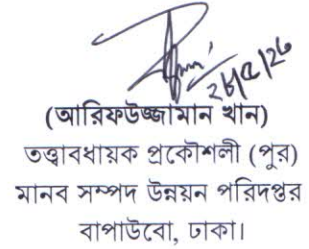 ২৮/৫/২৬
(আরিফউজ্জামান খান)
তত্ত্বাবধায়ক প্রকৌশলী (পুর)
মানব সম্পদ উন্নয়ন পরিদপ্তর
বাপাউবো, ঢাকা।